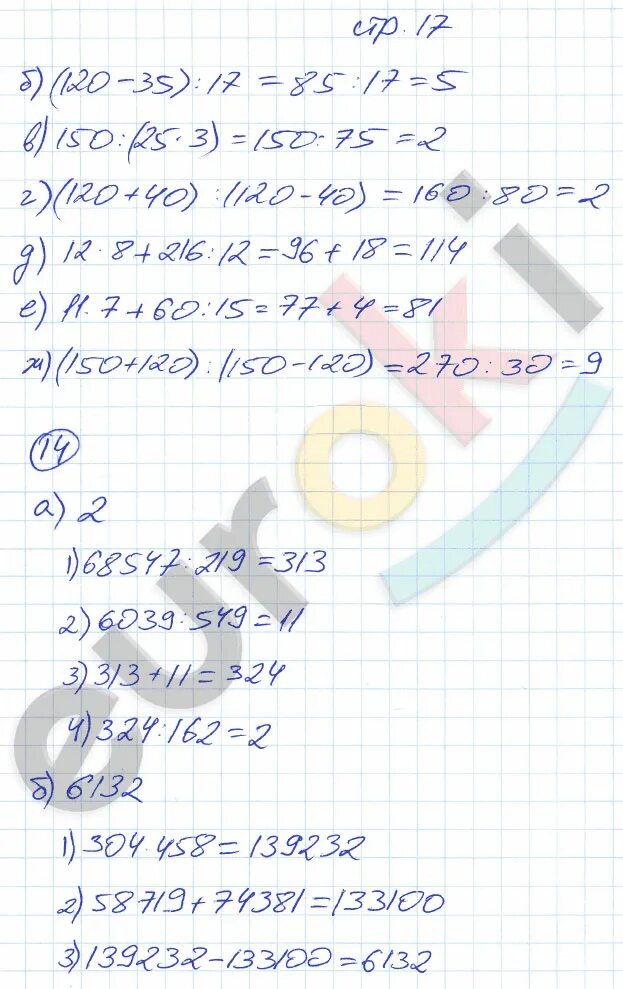 стр. 17
б) (120-35):17 = 85:17=5
в) 150:(25·3)=150:75=2
г) (120+40) :(120-40) = 160:80=2
д) 12·8+216:12=96+18=114
е) 11·7+60:15=77+4=81
ж) (150+120):(150-120)=270:30=9
14
а) 2
1) 68547:219=313
2) 6039:549=11
3) 313+11=324
4) 324:162=2
б) 6132
1) 304·458=139232
2) 58719+74381=133100
3) 139232-133100=6132
euroki